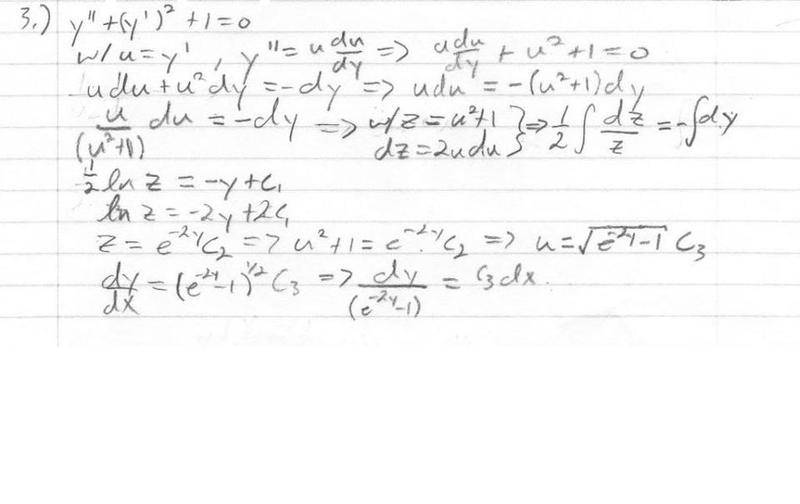 3.) y'' + (y')² + 1 = 0
w/ u = y' , y'' = u du/dy => u du/dy + u² + 1 = 0
u du + u² dy = -dy => u du = -(u²+1) dy
u/(u²+1) du = -dy => w/ z = u²+1 dz = 2u du } => 1/2 ∫ dz/z = -∫ dy
1/2 ln z = -y + C₁
ln z = -2y + 2C₁
z = e^(-2y) C₂ => u² + 1 = e^(-2y) C₂ => u = √(e^(-2y) - 1) C₃
dy/dx = (e^(-2y) - 1)^(1/2) C₃ => dy/(e^(-2y) - 1) = C₃ dx.